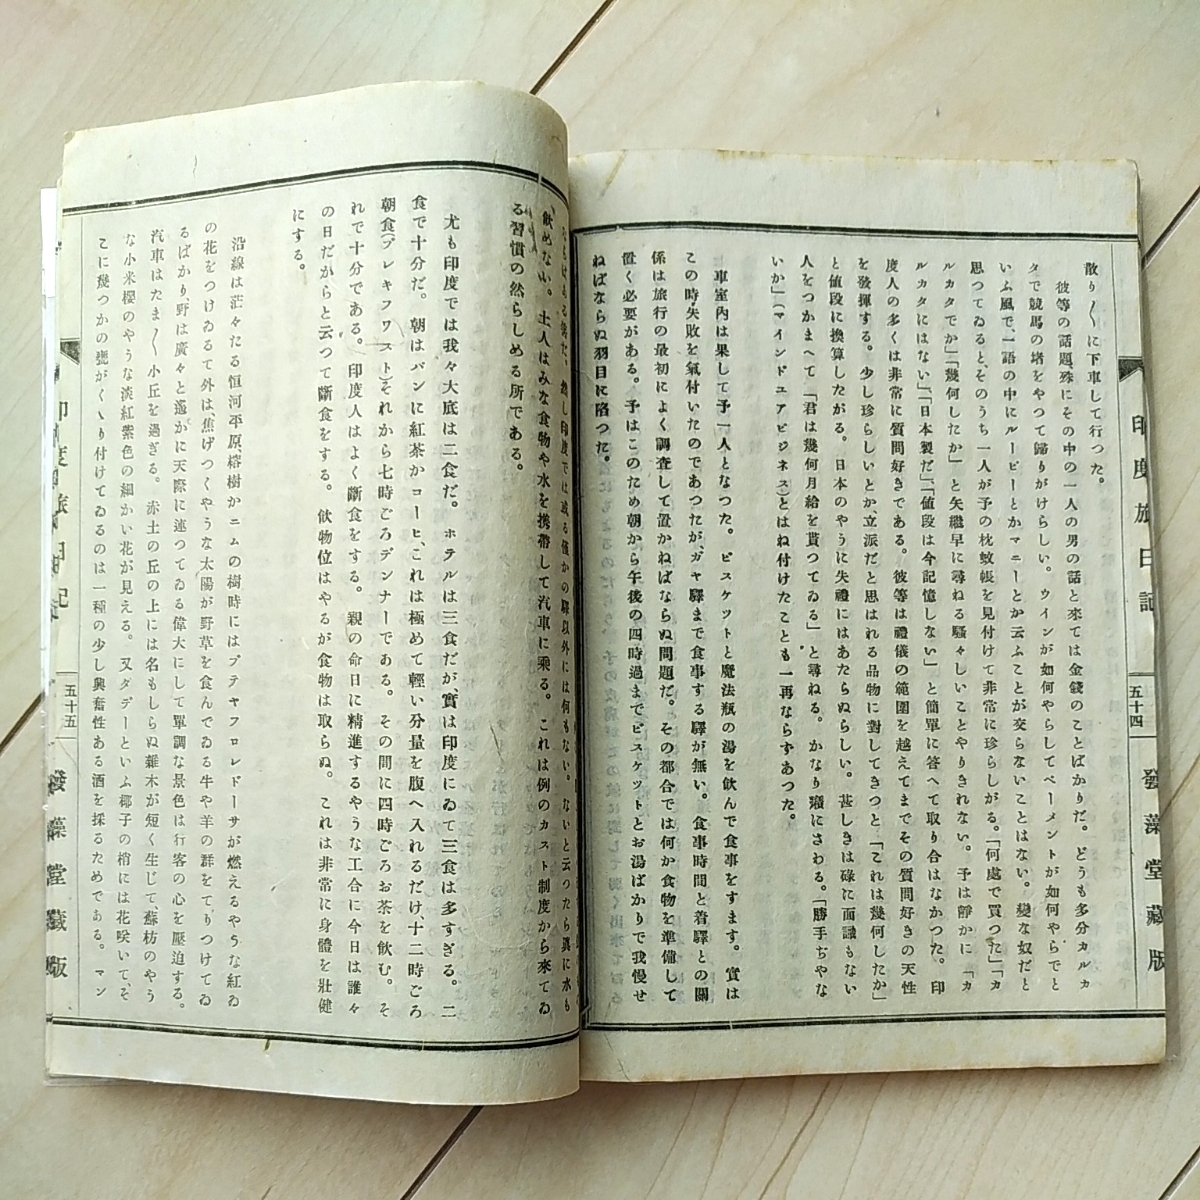 印度旅日記
五十四
發藻堂藏版
散り〱に下車して行つた。
彼等の話題、殊にその中の一人の男の話と來ては金錢のことばかりだ。どうも多分カルカ
タで競馬の堵をやつて歸りがけらしい。ウインが如何やらしてペーメントが如何やらでと
いふ風で、一語の中にルーピーとかマニーとか云ふことが交らないことはない。變な奴だと
思つてゐると、そのうち一人が予の枕蚊帳を見付けて非常に珍らしがる。「何處で買つた」「カ
ルカタでか」「幾何したか」と矢繼早に尋ねる騷々しいことやりきれない。予は靜かに「カ
ルカタにはない」「日本製だ」「値段は今記憶しない」と簡單に答へて取り合はなかつた。印
度人の多くは非常に質問好きである。彼等は禮儀の範圍を越えてまでその質問好きの天性
を發揮する。少し珍らしいとか、立派だと思はれる品物に對してきつと「これは幾何したか」
と値段に換算したがる。日本のやうに失禮にはあたらぬらしい。甚しきは碌に面識もない
人をつかまへて「君は幾何月給を貰つてゐる」と尋ねる。かなり癪にさわる。「勝手ぢやな
いか」(マインドユアビジネス)とはね付けたことも一再ならずあつた。
車室內は果して予一人となつた。ビスケツトと魔法瓶の湯を飮んで食事をすます。實は
この時失敗を氣付いたのであつたが、ガヤ驛まで食事する驛が無い。食事時間と着驛との關
係は旅行の最初によく調査して置かねばならぬ問題だ。その都合では何か食物を準備して
置く必要がある。予はこのため朝から午後の四時過までビスケツトとお湯ばかりで我慢せ
ねばならぬ羽目に陷つた。
し印度では或る僅かの驛以外には何もない。ないと云つたら眞に水も
飮めない。土人はみな食物や水を携帶して汽車に乘る。これは例のカスト制度から來てゐ
る習慣の然らしめる所である。
尤も印度では我々大底は二食だ。ホテルは三食だが、實は印度にゐて三食は多すぎる。二
食で十分だ。朝はパンに紅茶かコーヒ、これは極めて輕い分量を腹へ入れるだけ、十二時ごろ
朝食(ブレキフワスト)それから七時ごろデンナーである。その間に四時ごろお茶を飮む。そ
れで十分である。印度人はよく斷食をする。親の命日に精進するやうな工合に今日は誰々
の日だからと云つて斷食をする。飮物位はやるが食物は取らぬ。これは非常に身體を壯健
にする。
沿線は茫々たる恒河平原、榕樹かニムの樹時にはプテヤフロレドーサが燃えるやうな紅ゐ
の花をつけゐるて外は、焦げつくやうな太陽が野草を食んでゐる牛や羊の群をてりつけてゐ
るばかり野は廣々と遙かに天際に連つてゐる偉大にして單調な景色は行客の心を壓迫する。
汽車はたま〱小丘を過ぎる。赤土の丘の上には名もしらぬ雜木が短く生じて、蘇枋のやう
な小米櫻のやうな淡紅紫色の細かい花が見える。又タデーといふ椰子の梢には花咲いて、そ
こに幾つかの甕がくゝり付けてゐるのは一種の少し興奮性ある酒を採るためである。マン
五十五
發藻堂藏版